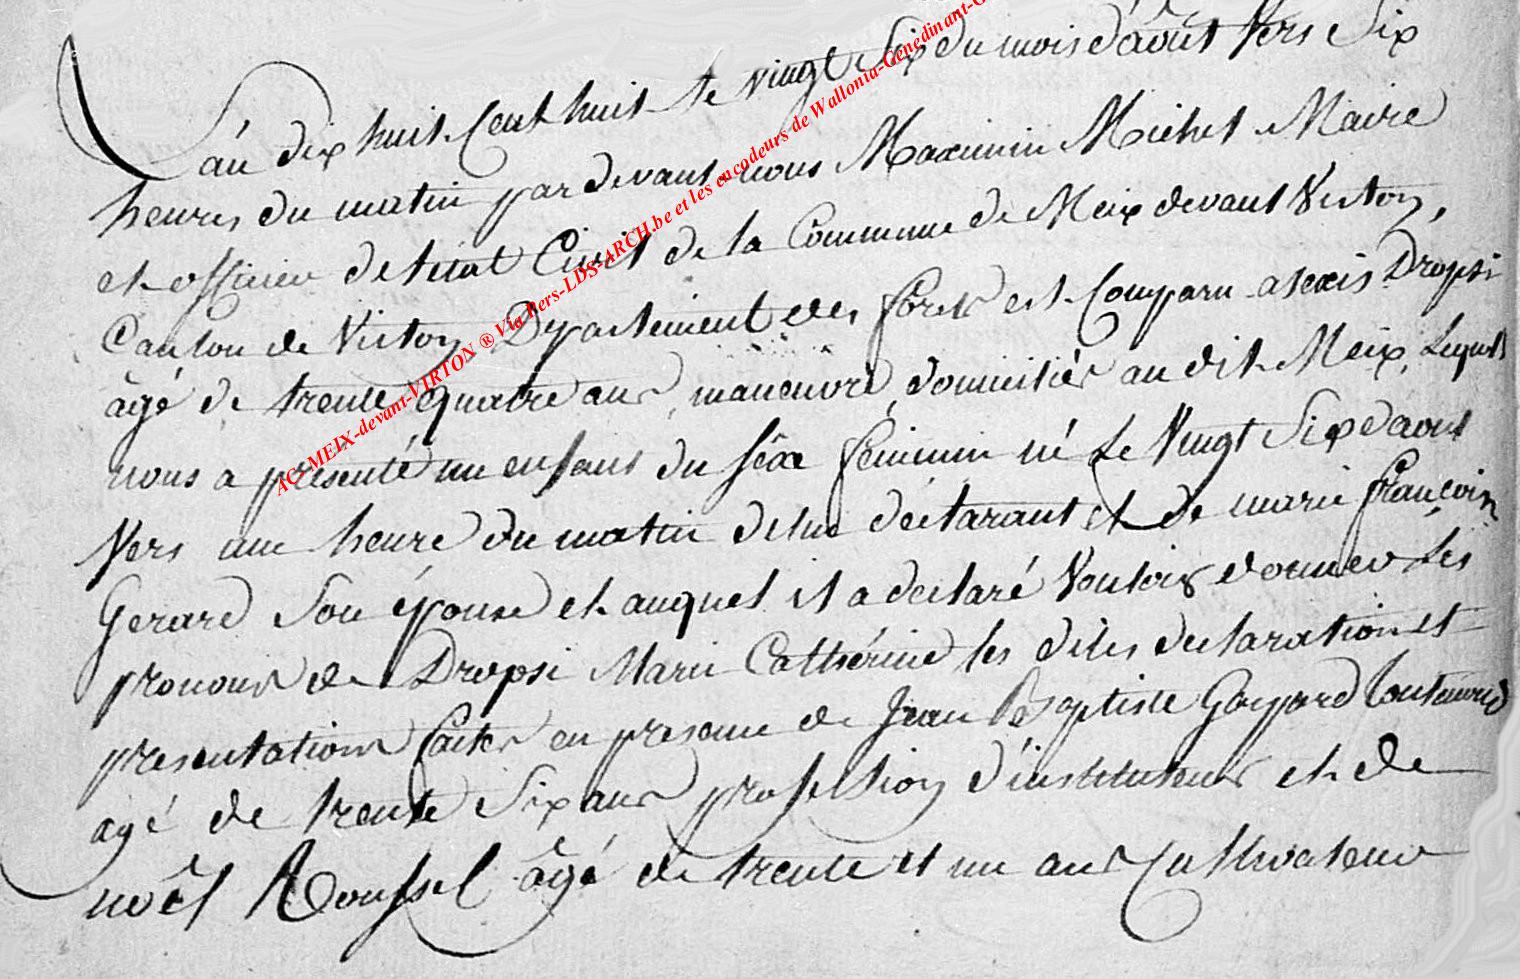 L'an dix huit cent huit le vingt Six du mois d'août Vers Six
heures du matin par devant nous Maximin Michel Maire
et officier de l'état Civil de la Commune de Meix devant Virton,
Canton de Virton Département des forêts est Comparu alexis Dropsi
âgé de trente quatre ans, manœuvre, domiciliés au dit Meix, Lequel
nous a présenté un enfans du sêxe féminin né Le Vingt Six d'août
Vers une heure du matin de lui déclarant et de marie françoise
Gerard Son épouse et auquel il a déclaré Vouloir donner Les
prenoms de Dropsi Marie Cathérine les dites declaration et
presentations faites en presence de Jean Baptiste Gaspard
agé de trente Six ans profession d'instituteur et de
noël Roussel âgé de trente et un ans Cultivateur
AC-MEIX-devant-VIRTON ® Via Hers-LDS-ARCH.be et les encodeurs de Wallonia-Genedinant-G